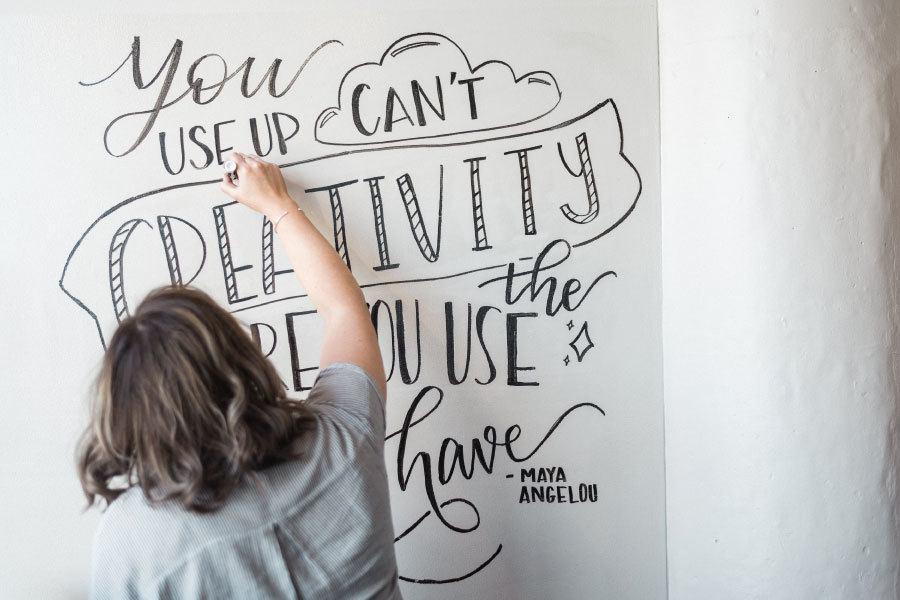 You CAN'T
USE UP
CREATIVITY
the
YOU USE
have
- MAYA
ANGELOU